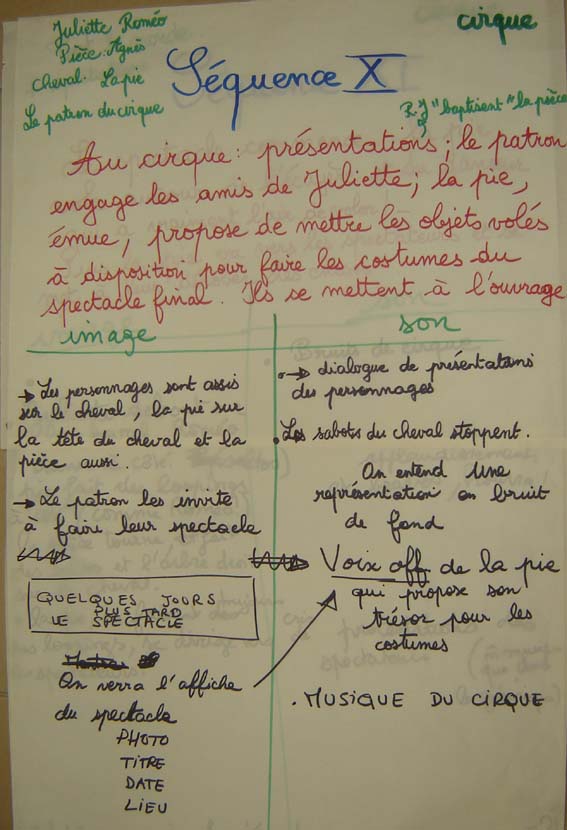 Juliette Roméo
Pièce : Agnès
cheval. La pie
Le patron du cirque
cirque
Séquence X
R. J "baptisent" la pièce
Au cirque : présentations ; le patron
engage les amis de Juliette ; la pie,
émue, propose de mettre les objets volés
à disposition pour faire les costumes du
spectacle final. Ils se mettent à l'ouvrage
image
→ Les personnages sont assis
sur le cheval, la pie sur
la tête du cheval et la
pièce aussi.
→ Le patron les invite
à faire leur spectacle
QUELQUES JOURS
PLUS TARD
LE SPECTACLE
On verra l'affiche
du spectacle
PHOTO
TITRE
DATE
LIEU
son
→ dialogue de présentations
des personnages
. Les sabots du cheval stoppent.
On entend une
représentation en bruit
de fond
Voix off de la pie
qui propose son
trésor pour les
costumes
. MUSIQUE DU CIRQUE